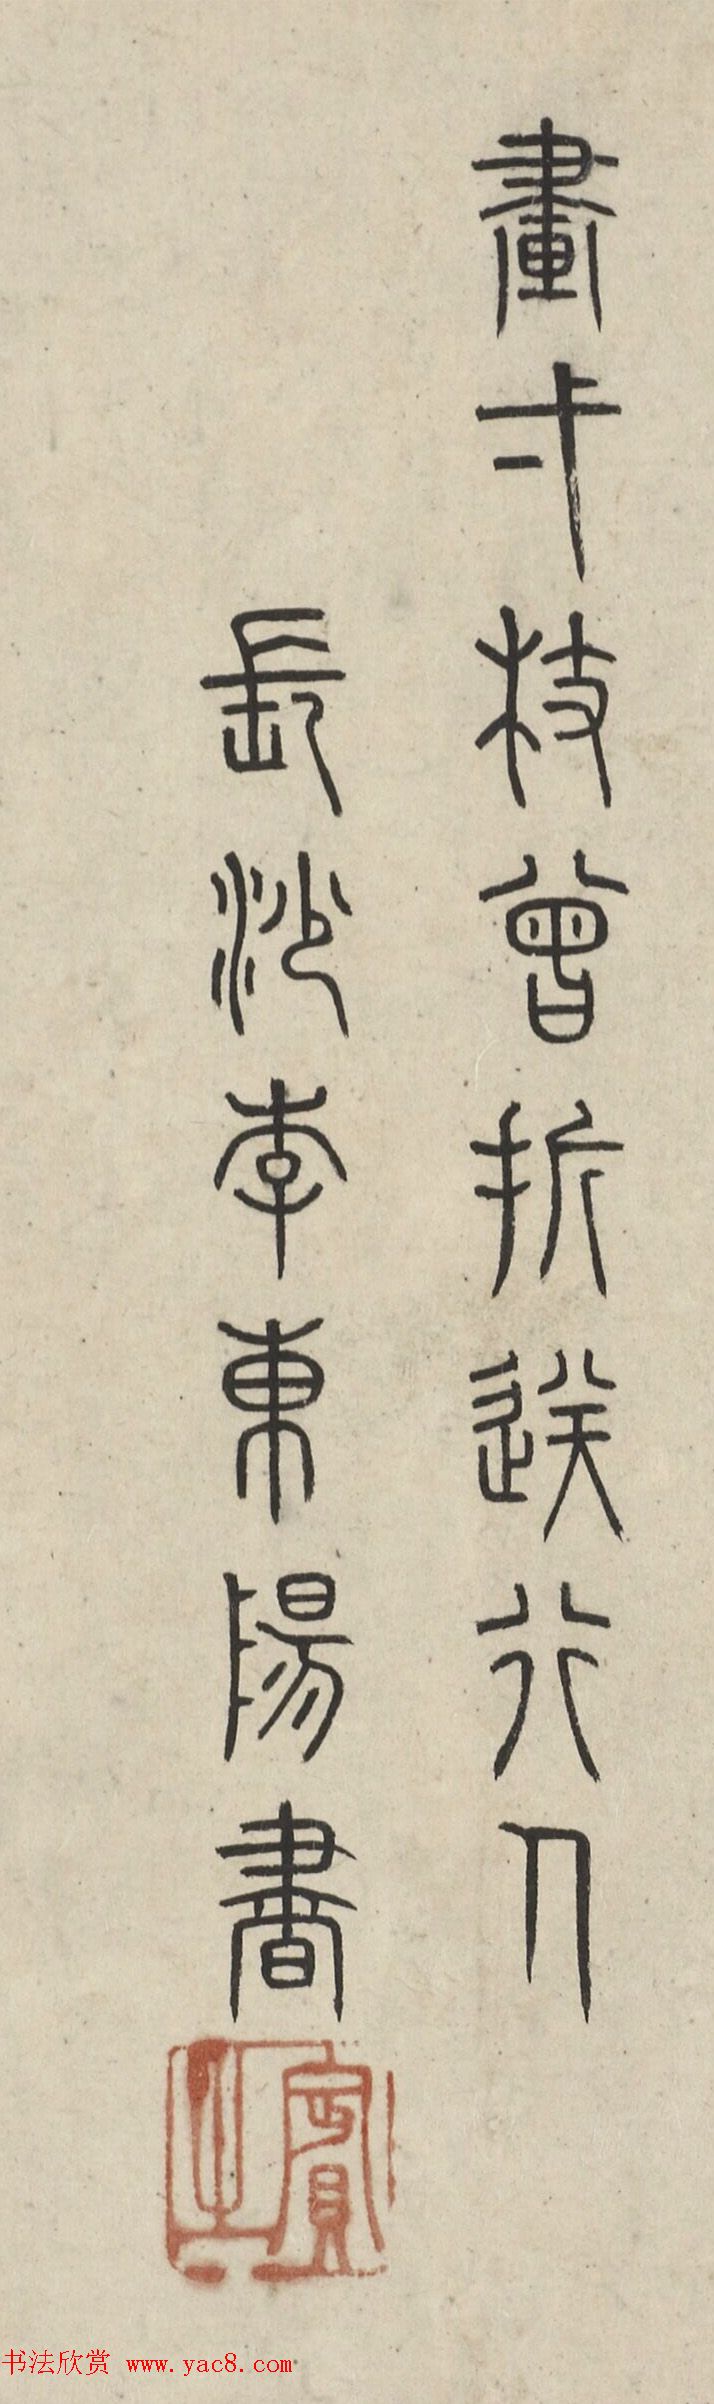 畫寸枝曾折送行人
長沙李東陽書
賓之
书法欣赏 www.yac8.com